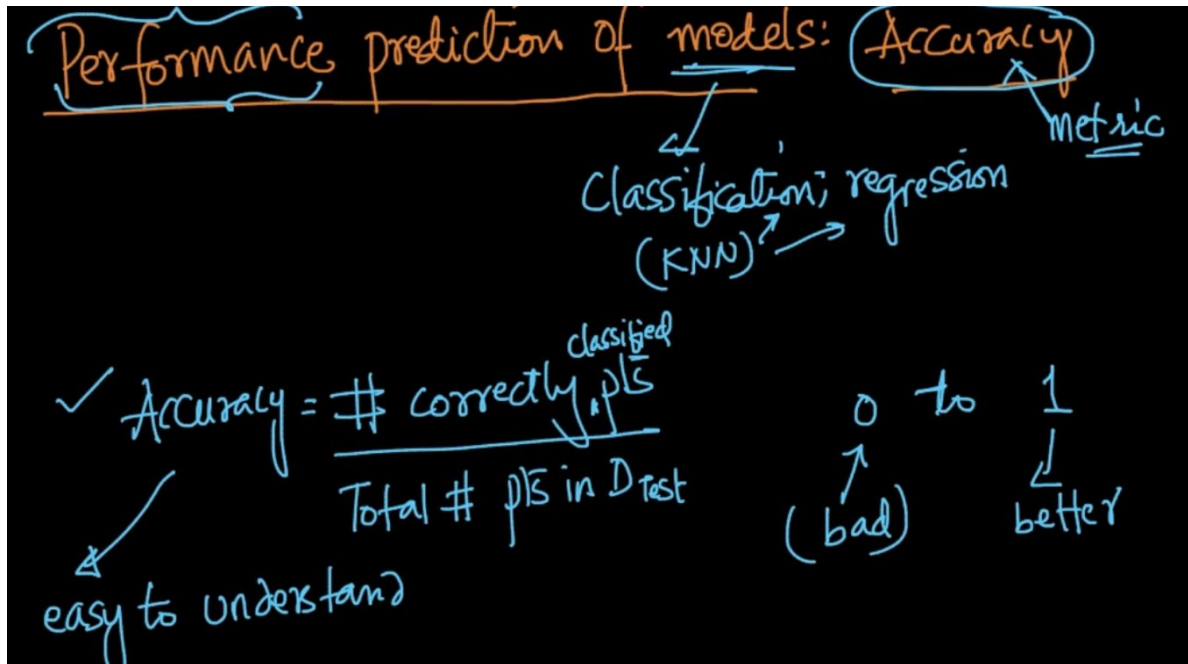 Performance prediction of models: Accuracy
metric
Classification; regression
(KNN)
Accuracy = # correctly classified pts
Total # pts in D Test
0 to 1
(bad)
better
easy to understand